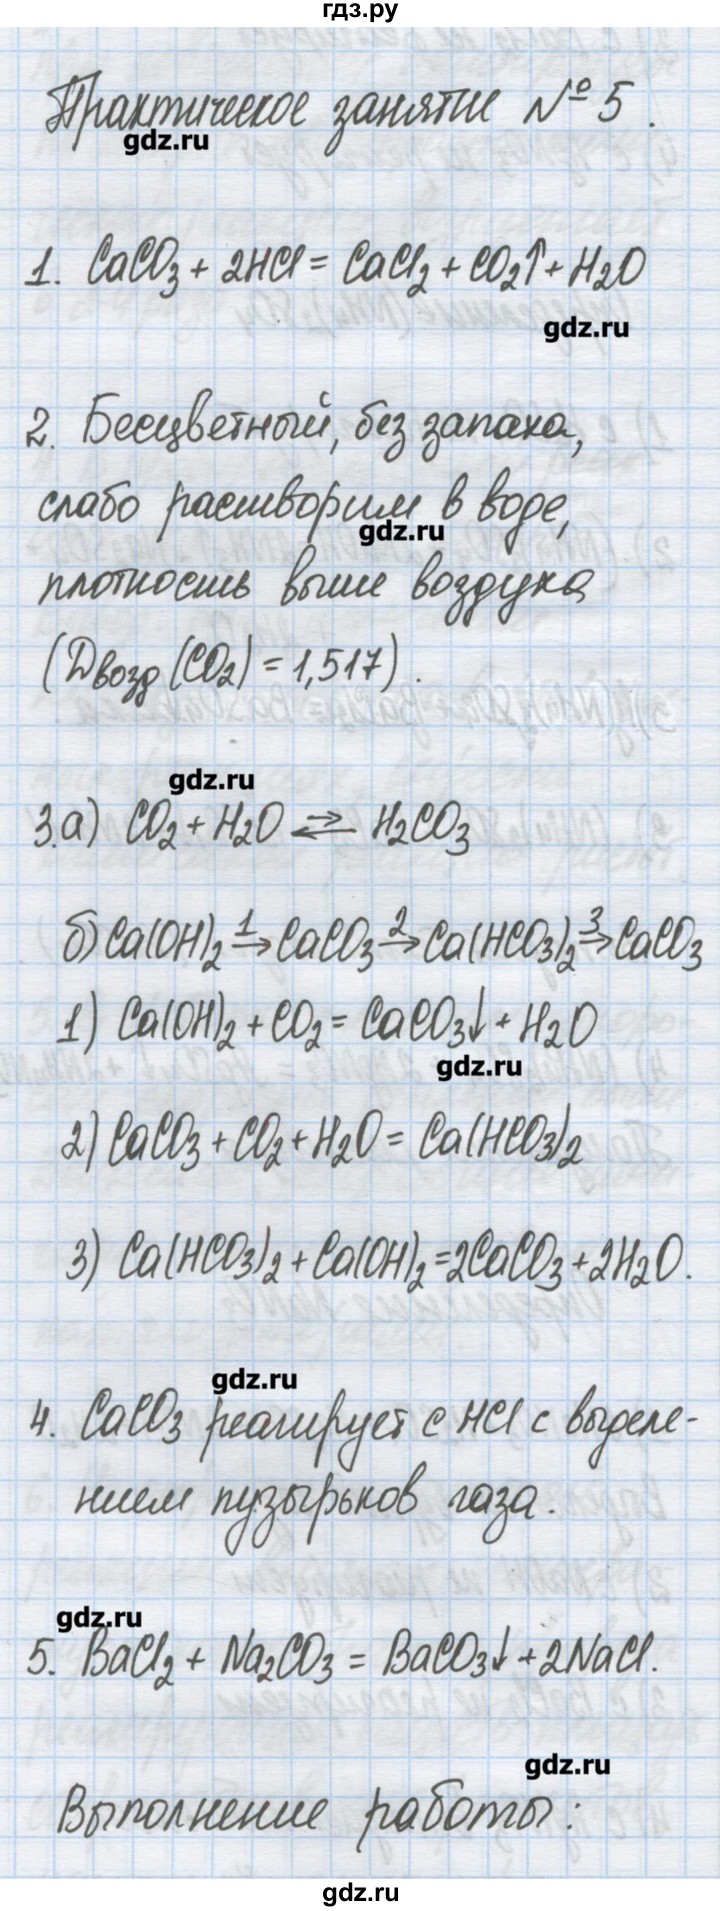 гдз.ру
Практическое занятие № 5.
gdz.ru
1. CaCO₃ + 2HCl = CaCl₂ + CO₂↑ + H₂O
gdz.ru
2. Бесцветный, без запаха,
слабо растворим в воде,
gdz.ru
плотность выше воздуха
(Dвозд (CO₂) = 1,517).
gdz.ru
3.а) CO₂ + H₂O ⇄ H₂CO₃
б) Ca(OH)₂ 1→ CaCO₃ 2→ Ca(HCO₃)₂ 3→ CaCO₃
1) Ca(OH)₂ + CO₂ = CaCO₃↓ + H₂O
gdz.ru
2) CaCO₃ + CO₂ + H₂O = Ca(HCO₃)₂
3) Ca(HCO₃)₂ + Ca(OH)₂ = 2CaCO₃ + 2H₂O.
gdz.ru
4. CaCO₃ реагирует с HCl с выделе-
нием пузырьков газа.
gdz.ru
5. BaCl₂ + Na₂CO₃ = BaCO₃↓ + 2NaCl.
gdz.ru
Выполнение работы:
gdz.ru